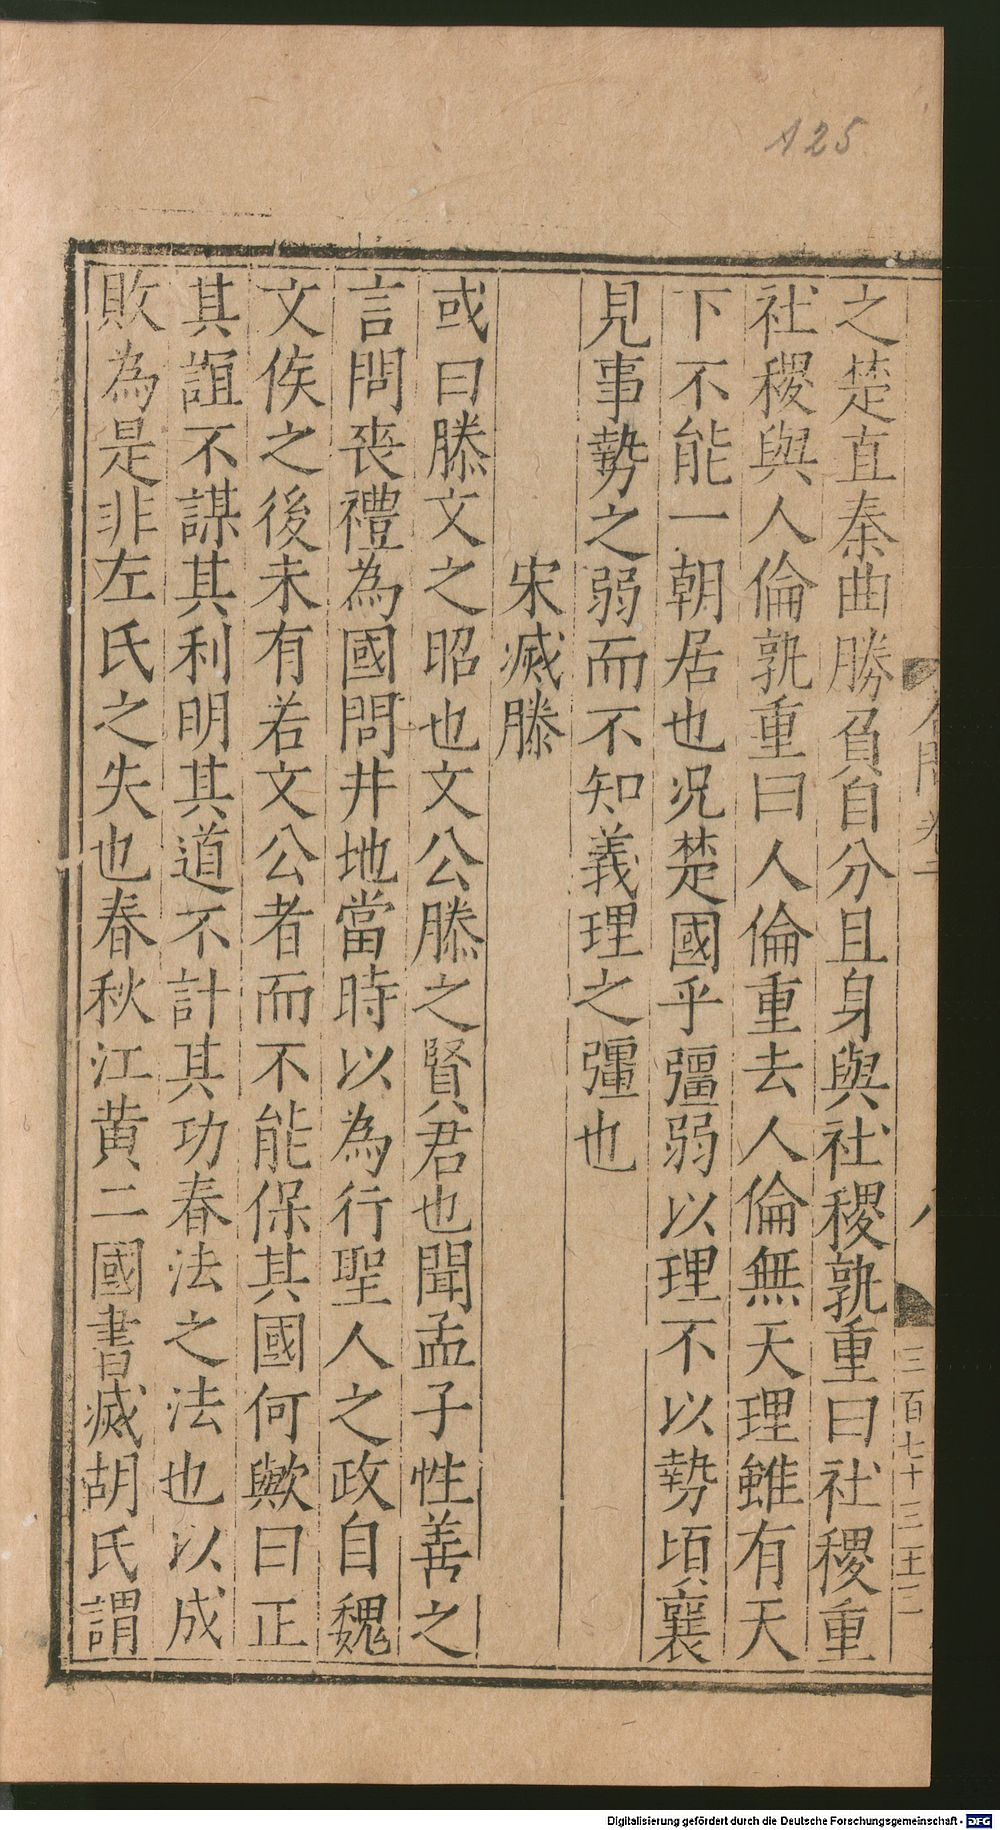 125
之楚直秦曲勝負自分且身與社稷孰重曰社稷重
社稷與人倫孰重曰人倫重去人倫無天理雖有天
下不能一朝居也况楚國乎彊弱以理不以勢頃襄
見事勢之弱而不知義理之彊也
宋滅滕
或曰滕文之昭也文公滕之賢君也聞孟子性善之
言問喪禮為國問井地當時以為行聖人之政自魏
文侯之後未有若文公者而不能保其國何歟曰正
其誼不謀其利明其道不計其功春法之法也以成
敗為是非左氏之失也春秋江黄二國書滅胡氏謂
三百七十三王三
Digitalisierung gefördert durch die Deutsche Forschungsgemeinschaft - DFG